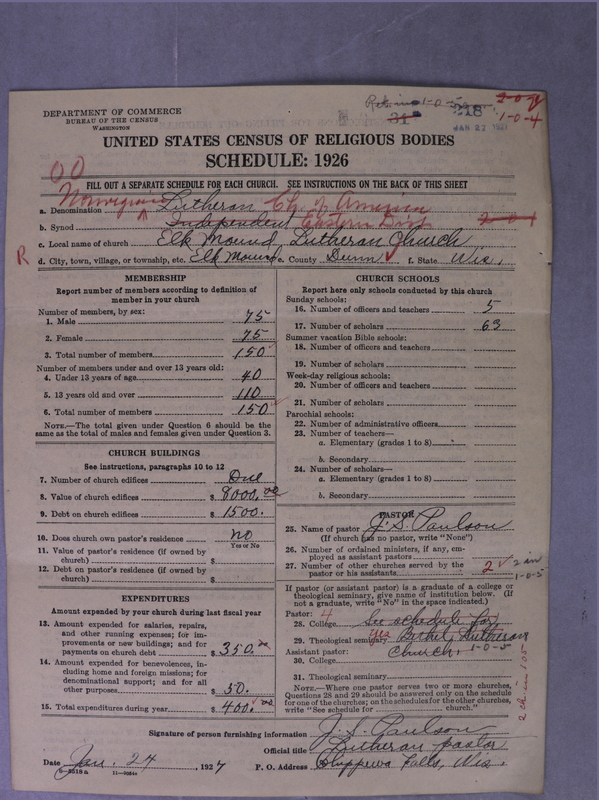 Ret. in 1-0-5
2-0-4
31 218
1-0-4
JAN 27
DEPARTMENT OF COMMERCE
BUREAU OF THE CENSUS
WASHINGTON
UNITED STATES CENSUS OF RELIGIOUS BODIES
SCHEDULE: 1926
00
FILL OUT A SEPARATE SCHEDULE FOR EACH CHURCH. SEE INSTRUCTIONS ON THE BACK OF THIS SHEET
a. Denomination Norwegian Lutheran Ch. of America
b. Synod Independent Eastern Dist. 2-0-1
c. Local name of church Elk Mound, Lutheran Church
R d. City, town, village, or township, etc. Elk Mound e. County Dunn f. State Wis.
MEMBERSHIP
Report number of members according to definition of
member in your church
Number of members, by sex:
1. Male 75
2. Female 75
3. Total number of members 150
Number of members under and over 13 years old:
4. Under 13 years of age 40
5. 13 years old and over 110
6. Total number of members 150
NOTE.—The total given under Question 6 should be
same as the total of males and females given under Question 3.
CHURCH BUILDINGS
See instructions, paragraphs 10 to 12
7. Number of church edifices One
8. Value of church edifices $ 8000.00
9. Debt on church edifices $ 1500.
10. Does church own pastor's residence no
Yes or No
11. Value of pastor's residence (if owned by
church) $
12. Debt on pastor's residence (if owned by
church) $
EXPENDITURES
Amount expended by your church during last fiscal year
13. Amount expended for salaries, repairs,
and other running expenses; for im-
provements or new buildings; and for
payments on church debt $ 350.00
14. Amount expended for benevolences, in-
cluding home and foreign missions; for
denominational support; and for all
other purposes $ 50.
15. Total expenditures during year $ 400.00
CHURCH SCHOOLS
Report here only schools conducted by this church
Sunday schools:
16. Number of officers and teachers 5
17. Number of scholars 63
Summer vacation Bible schools:
18. Number of officers and teachers
19. Number of scholars
Week-day religious schools:
20. Number of officers and teachers
21. Number of scholars
Parochial schools:
22. Number of administrative officers
23. Number of teachers—
a. Elementary (grades 1 to 8)
b. Secondary
24. Number of scholars—
a. Elementary (grades 1 to 8)
b. Secondary
PASTOR
25. Name of pastor J. S. Paulson
(If church has no pastor, write "None")
26. Number of ordained ministers, if any, em-
ployed as assistant pastors
27. Number of other churches served by the
pastor or his assistants 2 2 in
1-0-5
If pastor (or assistant pastor) is a graduate of a college or
theological seminary, give name of institution below. (If
not a graduate, write "No" in the space indicated.)
Pastor: 4
28. College See schedule for
29. Theological seminary Bethel Lutheran
Assistant pastor: Church. 1-0-5
30. College
31. Theological seminary
NOTE.—Where one pastor serves two or more churches,
Questions 28 and 29 should be answered only on the schedule
for one of the churches; on the schedules for the other churches,
write "See schedule for church."
2 ch in 105
Signature of person furnishing information J. S. Paulson
Official title Lutheran pastor
Date Jan. 24, 1927 P. O. Address Chippewa Falls, Wis.